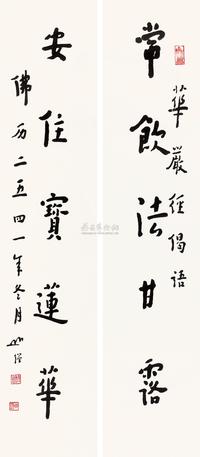 常飲法甘露
華嚴經偈語
安住寶蓮華
佛历二五四一年冬月